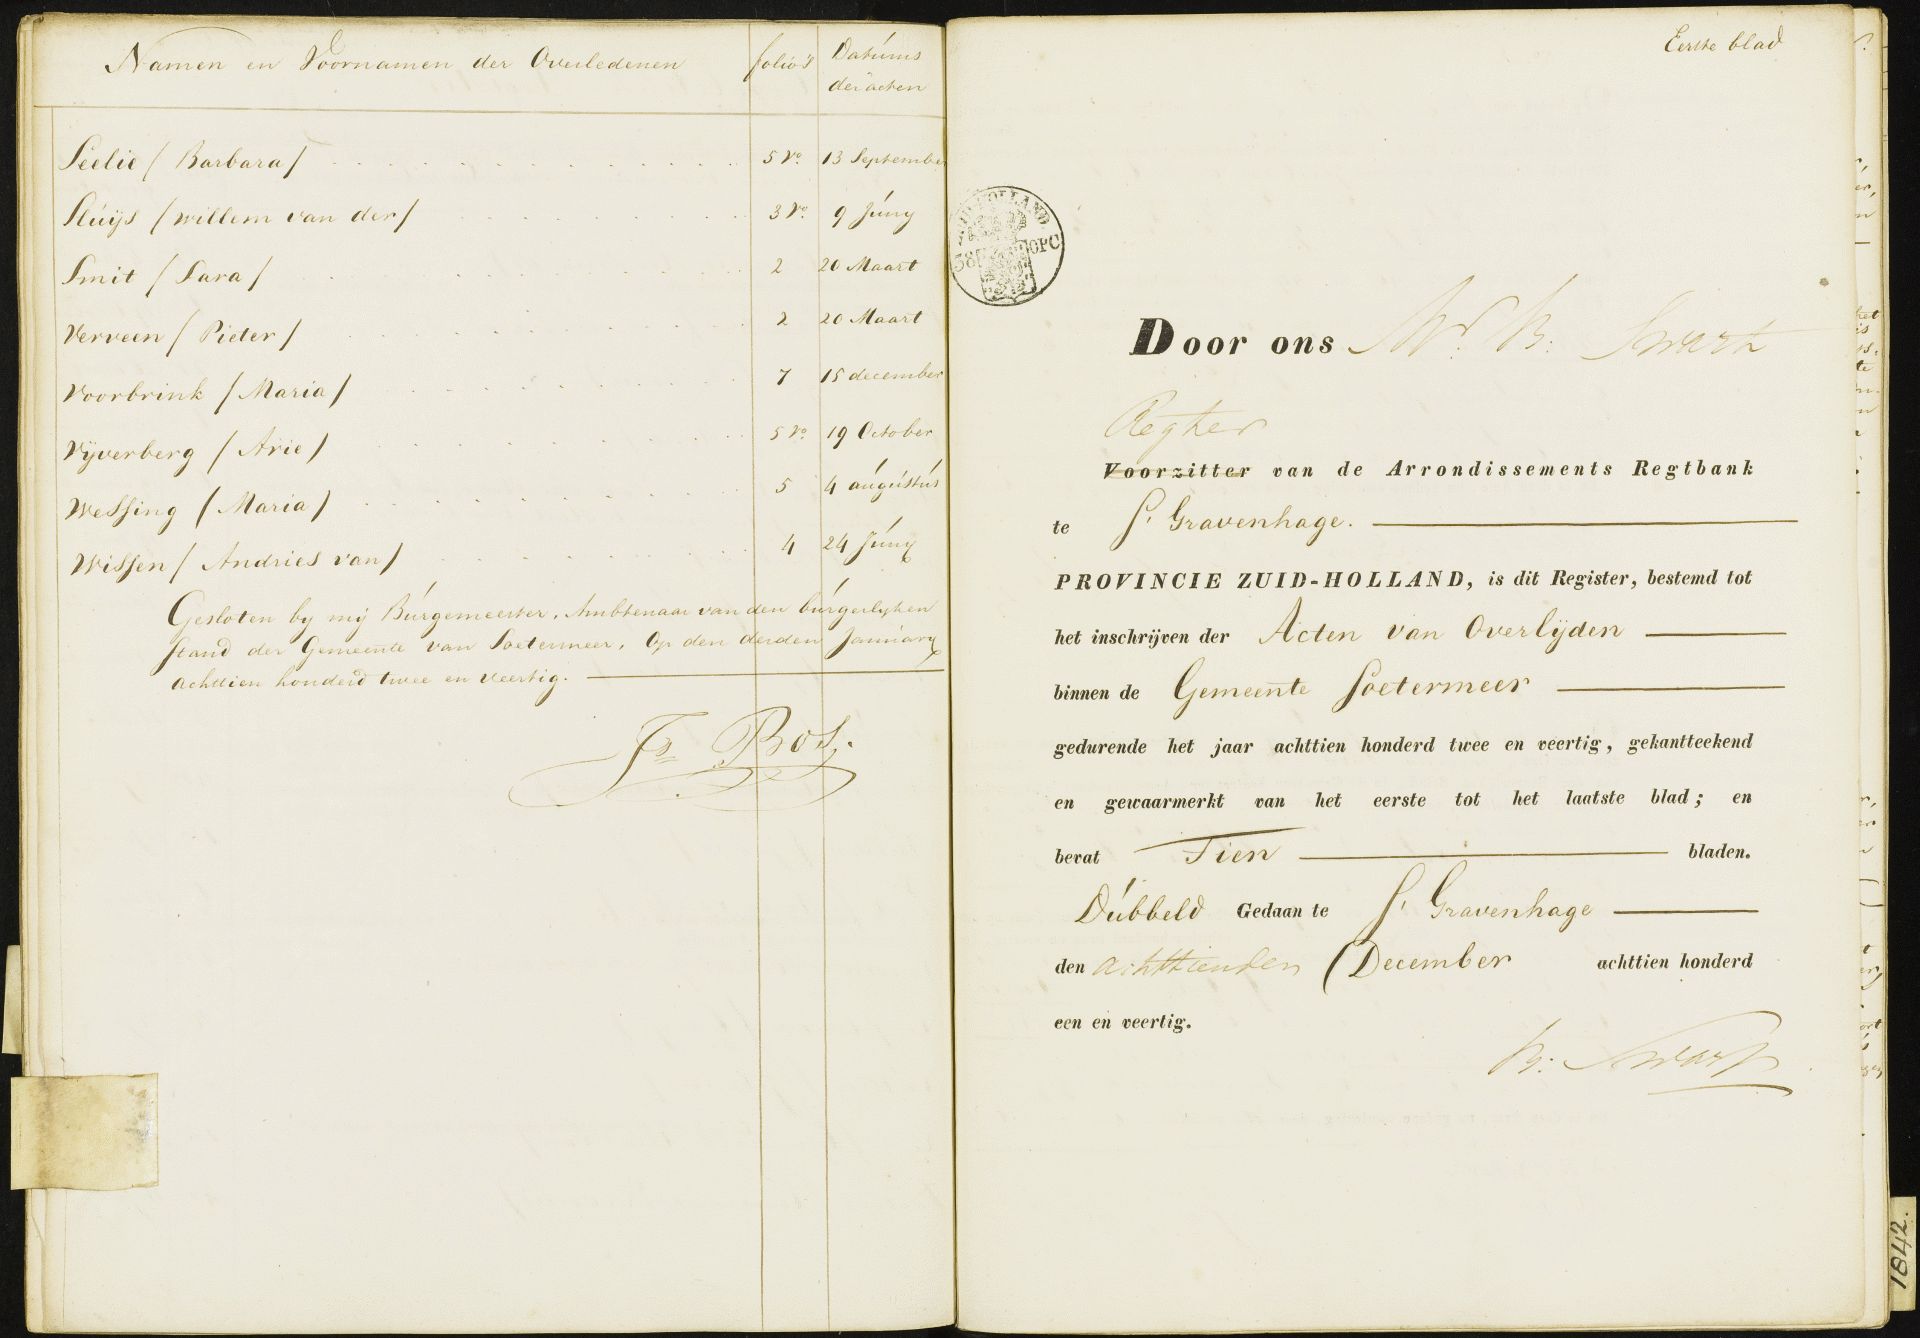 Namen en Voornamen der Overledenen folio's Datúms
der acten
Seelie / Barbara / 5 Vo. 13 September
Slúijs / Willem van der / 3 Vo. 9 Júny
Smit / Sara / 2 20 Maart
Verveen / Pieter / 2 20 Maart
Voorbrink / Maria / 7 15 december
Vijverberg / Arie / 5 Vo. 19 October
Wessing / Maria / 5 4 áugústús
Wissen / Andries van / 4 24 Júny
Gesloten by mij Búrgemeester, Ambtenaar van den búrgerlyken
stand der Gemeente van Soetermeer, Op den derden Januarij
achttien honderd twee en veertig.
Js Bos.
Eerste blad
ZUID HOLLAND
38 OPC
Door ons Mr. B. Swart
Regter
Voorzitter van de Arrondissements Regtbank
te S. Gravenhage.
PROVINCIE ZUID-HOLLAND, is dit Register, bestemd tot
het inschrijven der Acten van Overlijden
binnen de Gemeente Soetermeer
gedurende het jaar achttien honderd twee en veertig, gekantteekend
en gewaarmerkt van het eerste tot het laatste blad; en
bevat Tien bladen.
Dúbbeld Gedaan te S. Gravenhage
den achttienden December achttien honderd
een en veertig.
B. Swart
1842.